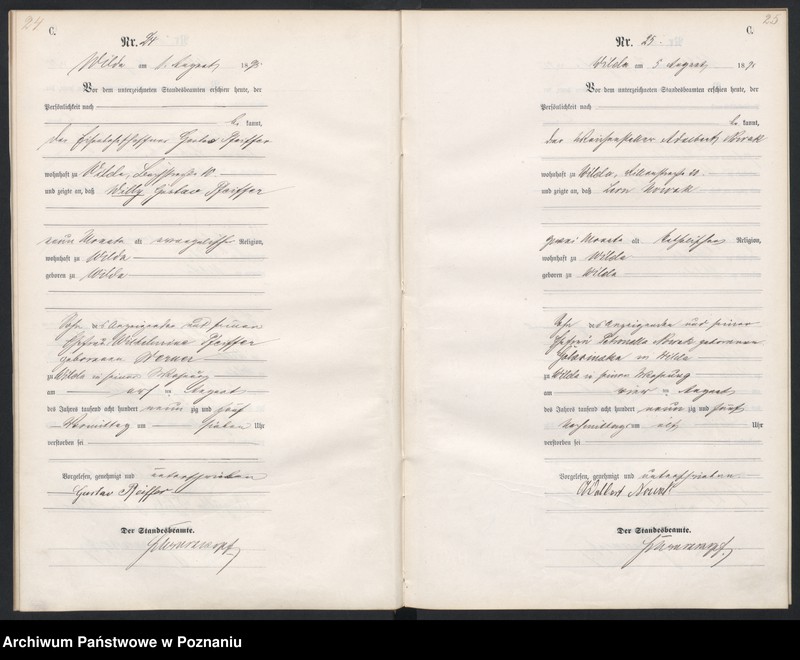 24
C.
Nr. 24
Wilda am 1. August 1895
Vor dem unterzeichneten Standesbeamten erschien heute, der
Persönlichkeit nach
be kannt,
der Gustav Pfeiffer
wohnhaft zu Wilda, 10.
und zeigte an, daß Willy Gustav Pfeiffer
neun Monate alt evangelischer Religion,
wohnhaft zu Wilda
geboren zu Wilda
Sohn des Anzeigenden und seiner
Ehefrau Wilhelmine Pfeiffer
geborenen Werner
zu Wilda in seiner Wohnung
am ten August
des Jahres tausend acht hundert neun zig und fünf
Vormittag um sieben Uhr
verstorben sei
Vorgelesen, genehmigt und unterschrieben
Gustav Pfeiffer
Der Standesbeamte.
25
C.
Nr. 25
Wilda am 5 August 1895
Vor dem unterzeichneten Standesbeamten erschien heute, der
Persönlichkeit nach
be kannt,
der Weichensteller Adalbert Nowak
wohnhaft zu Wilda,
und zeigte an, daß Leon Nowak
zwei Monate alt katholischer Religion,
wohnhaft zu Wilda
geboren zu Wilda
Sohn des Anzeigenden und seiner
Ehefrau Petronella Nowak geborenen
in Wilda
zu Wilda in seiner Wohnung
am vier ten August
des Jahres tausend acht hundert neun zig und fünf
Nachmittags um elf Uhr
verstorben sei
Vorgelesen, genehmigt und unterschrieben
Nowak
Der Standesbeamte.
Archiwum Państwowe w Poznaniu